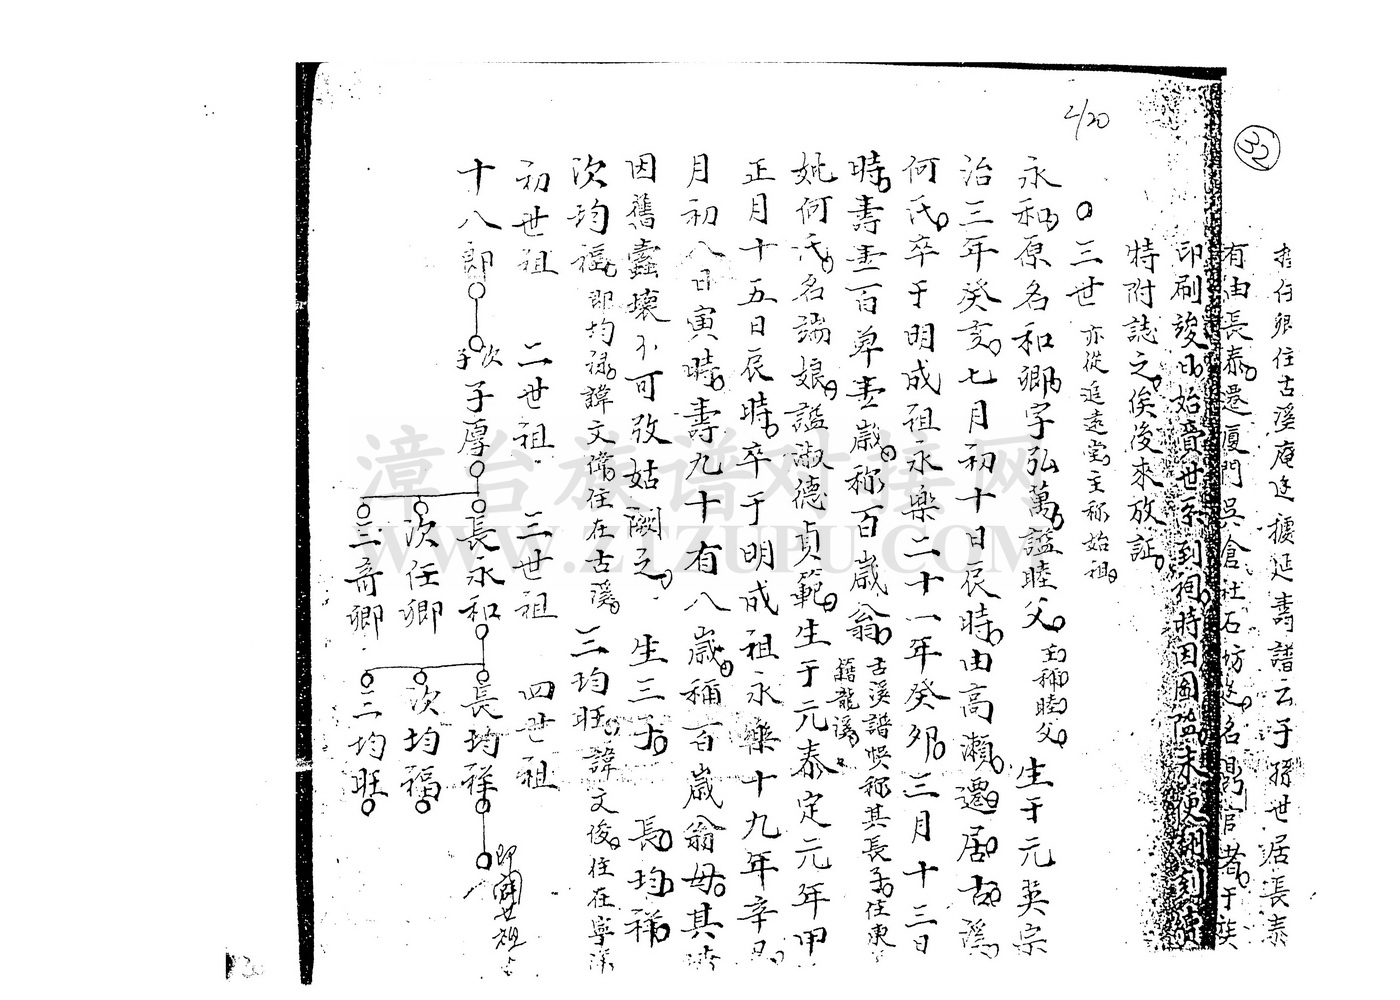 32
2/20
任卿住古溪庵 延壽譜云子孫世居長泰
有由長泰遷廈門吳倉社石坊 名 官者于族
印刷竣日始賣世系到祠時因 未便 刻
特附誌之俟後來放証
〇三世 亦從追遠堂主称始祖
永和原名和卿字弘萬諡睦父 主稱睦父 生于元英宗
治三年癸亥七月初十日辰時由高瀨遷居古溪
何氏卒于明成祖永樂二十一年癸卯三月十三日
時壽壹百單壹歲称百歲翁 古溪譜悞称其長子住東 籍龍溪
妣何氏名端娘諡淑德貞範生于元泰定元年甲
正月十五日辰時卒于明成祖永樂十九年辛丑
月初八日寅時壽九十有八歲稱百歲翁母其
因舊蠹壞不可攷姑闕之 生三子 長均祥
次均福即均祿諱文 住在古溪 三均旺諱文俊住在寧洋
初世祖 二世祖 三世祖 四世祖
十八郎 次子子厚 長永和 長均祥 即開世祖
次任卿 次均福
三奇卿 三均旺
漳台族谱对接网
WWW.ZTZUPU.COM